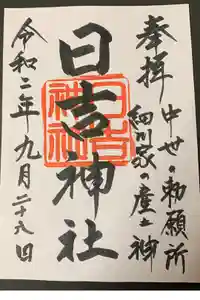 奉拝
中世・勅願所
細川家の産土神
日吉神社
令和二年九月二十八日